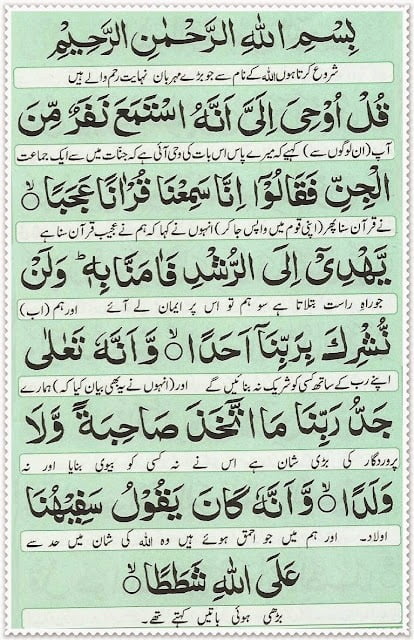 بِسْمِ اللهِ الرَّحْمٰنِ الرَّحِيْمِ
شروع کرتا ہوں اللہ کے نام سے جو بڑے مہربان نہایت رحم والے ہیں
قُلْ اُوْحِىَ اِلَىَّ اَنَّهُ اسْتَمَعَ نَفَرٌ مِّنَ
آپ (ان لوگوں سے) کہیے کہ میرے پاس اس بات کی وحی آئی ہے کہ جنات میں سے ایک جماعت
الْجِنِّ فَقَالُوْٓا اِنَّا سَمِعْنَا قُرْاٰنًا عَجَبًا ۙ
نے قرآن سنا پھر (اپنی قوم میں واپس جا کر) انہوں نے کہا کہ ہم نے عجیب قرآن سنا ہے
يَّهْدِىْٓ اِلَى الرُّشْدِ فَاٰمَنَّا بِهٖ ؕ وَلَنْ
جو راہِ راست بتلاتا ہے سو ہم تو اس پر ایمان لے آئے اور ہم (اب)
نُّشْرِكَ بِرَبِّنَآ اَحَدًا ۙ وَّاَنَّهٗ تَعٰلٰى
اپنے رب کے ساتھ کسی کو شریک نہ بنائیں گے اور (انہوں نے یہ بھی بیان کیا کہ) ہمارے
جَدُّ رَبِّنَا مَا اتَّخَذَ صَاحِبَةً وَّلَا
پروردگار کی بڑی شان ہے اس نے نہ کسی کو بیوی بنایا اور نہ
وَلَدًا ۙ وَّاَنَّهٗ كَانَ يَقُوْلُ سَفِيْهُنَا
اولاد۔ اور ہم میں جو احمق ہوئے ہیں وہ اللہ کی شان میں حد سے
عَلَى اللهِ شَطَطًا ۙ
بڑھی ہوئی باتیں کہتے تھے۔